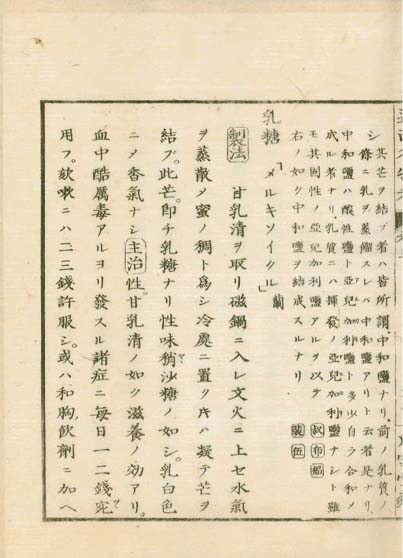 其芒ヲ結ブ者ハ皆所謂中和鹽ナリ前ノ乳質ノ
條ニ乳ヲ蒸餾スレバ中和鹽アリト云者是ナリ
中和鹽ハ酸性鹽ト亞兒加利鹽ト多少自ラ合和メ
成ル者ナリ乳質ニハ揮發ノ亞兒加利鹽ナシト雖
モ其固性ノ亞兒加利鹽アルヲ以テ
右ノ如ク中和鹽ヲ結成スルナリ
乳糖「メルキソイクル」蘭
製法 甘乳清ヲ取リ磁鍋ニ入レ文火ニ上セ水氣
ヲ蒸散メ蜜ノ稠ト爲シ冷處ニ置クキハ凝テ芒ヲ
結ブ。此芒。即チ乳糖ナリ性味稍沙糖ノ如シ。乳白色
ニメ香氣ナシ主治性。甘乳清ノ如ク滋養ノ効アリ。
血中酷厲毒アルヨリ發スル諸症ニ每日一二錢宛
用フ。欬嗽ニハ二三錢許服シ。或ハ和胸飲劑ニ加ヘ